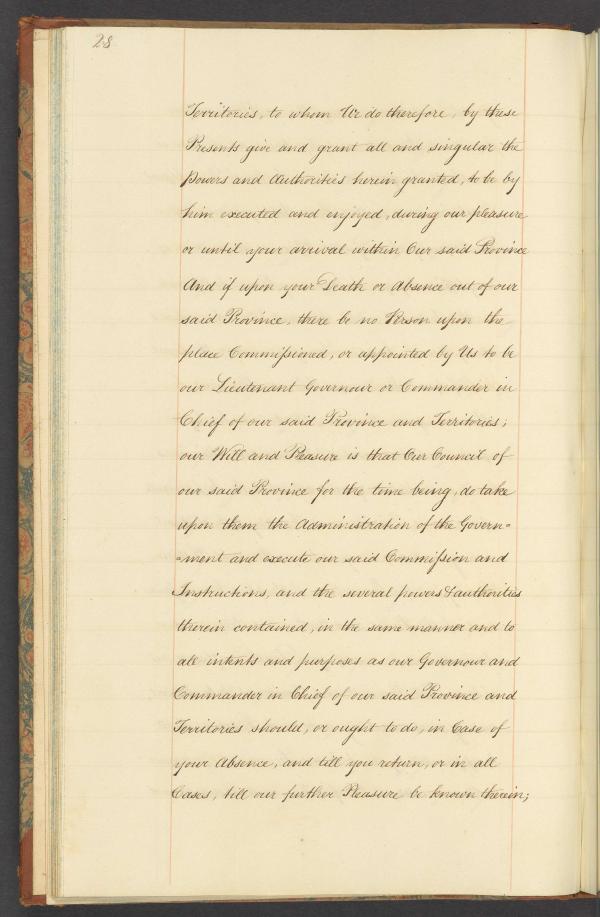 28
Territories, to whom We do therefore, by these
Presents give and grant all and singular the
Powers and Authorities herein granted, to be by
him executed and enjoyed, during our pleasure
or until your arrival within Our said Province
And if upon your Death or Absence out of our
said Province, there be no Person upon the
place Commissioned, or appointed by Us to be
our Lieutenant Governour or Commander in
Chief of our said Province and Territories;
our Will and Pleasure is that Our Council of
our said Province for the time being, do take
upon them the Administration of the Govern=
=ment and execute our said Commission and
Instructions, and the several powers & authorities
therein contained, in the same manner and to
all intents and purposes as our Governour and
Commander in Chief of our said Province and
Territories should, or ought to do, in Case of
your Absence, and till you return, or in all
Cases, till our further Pleasure be known therein;